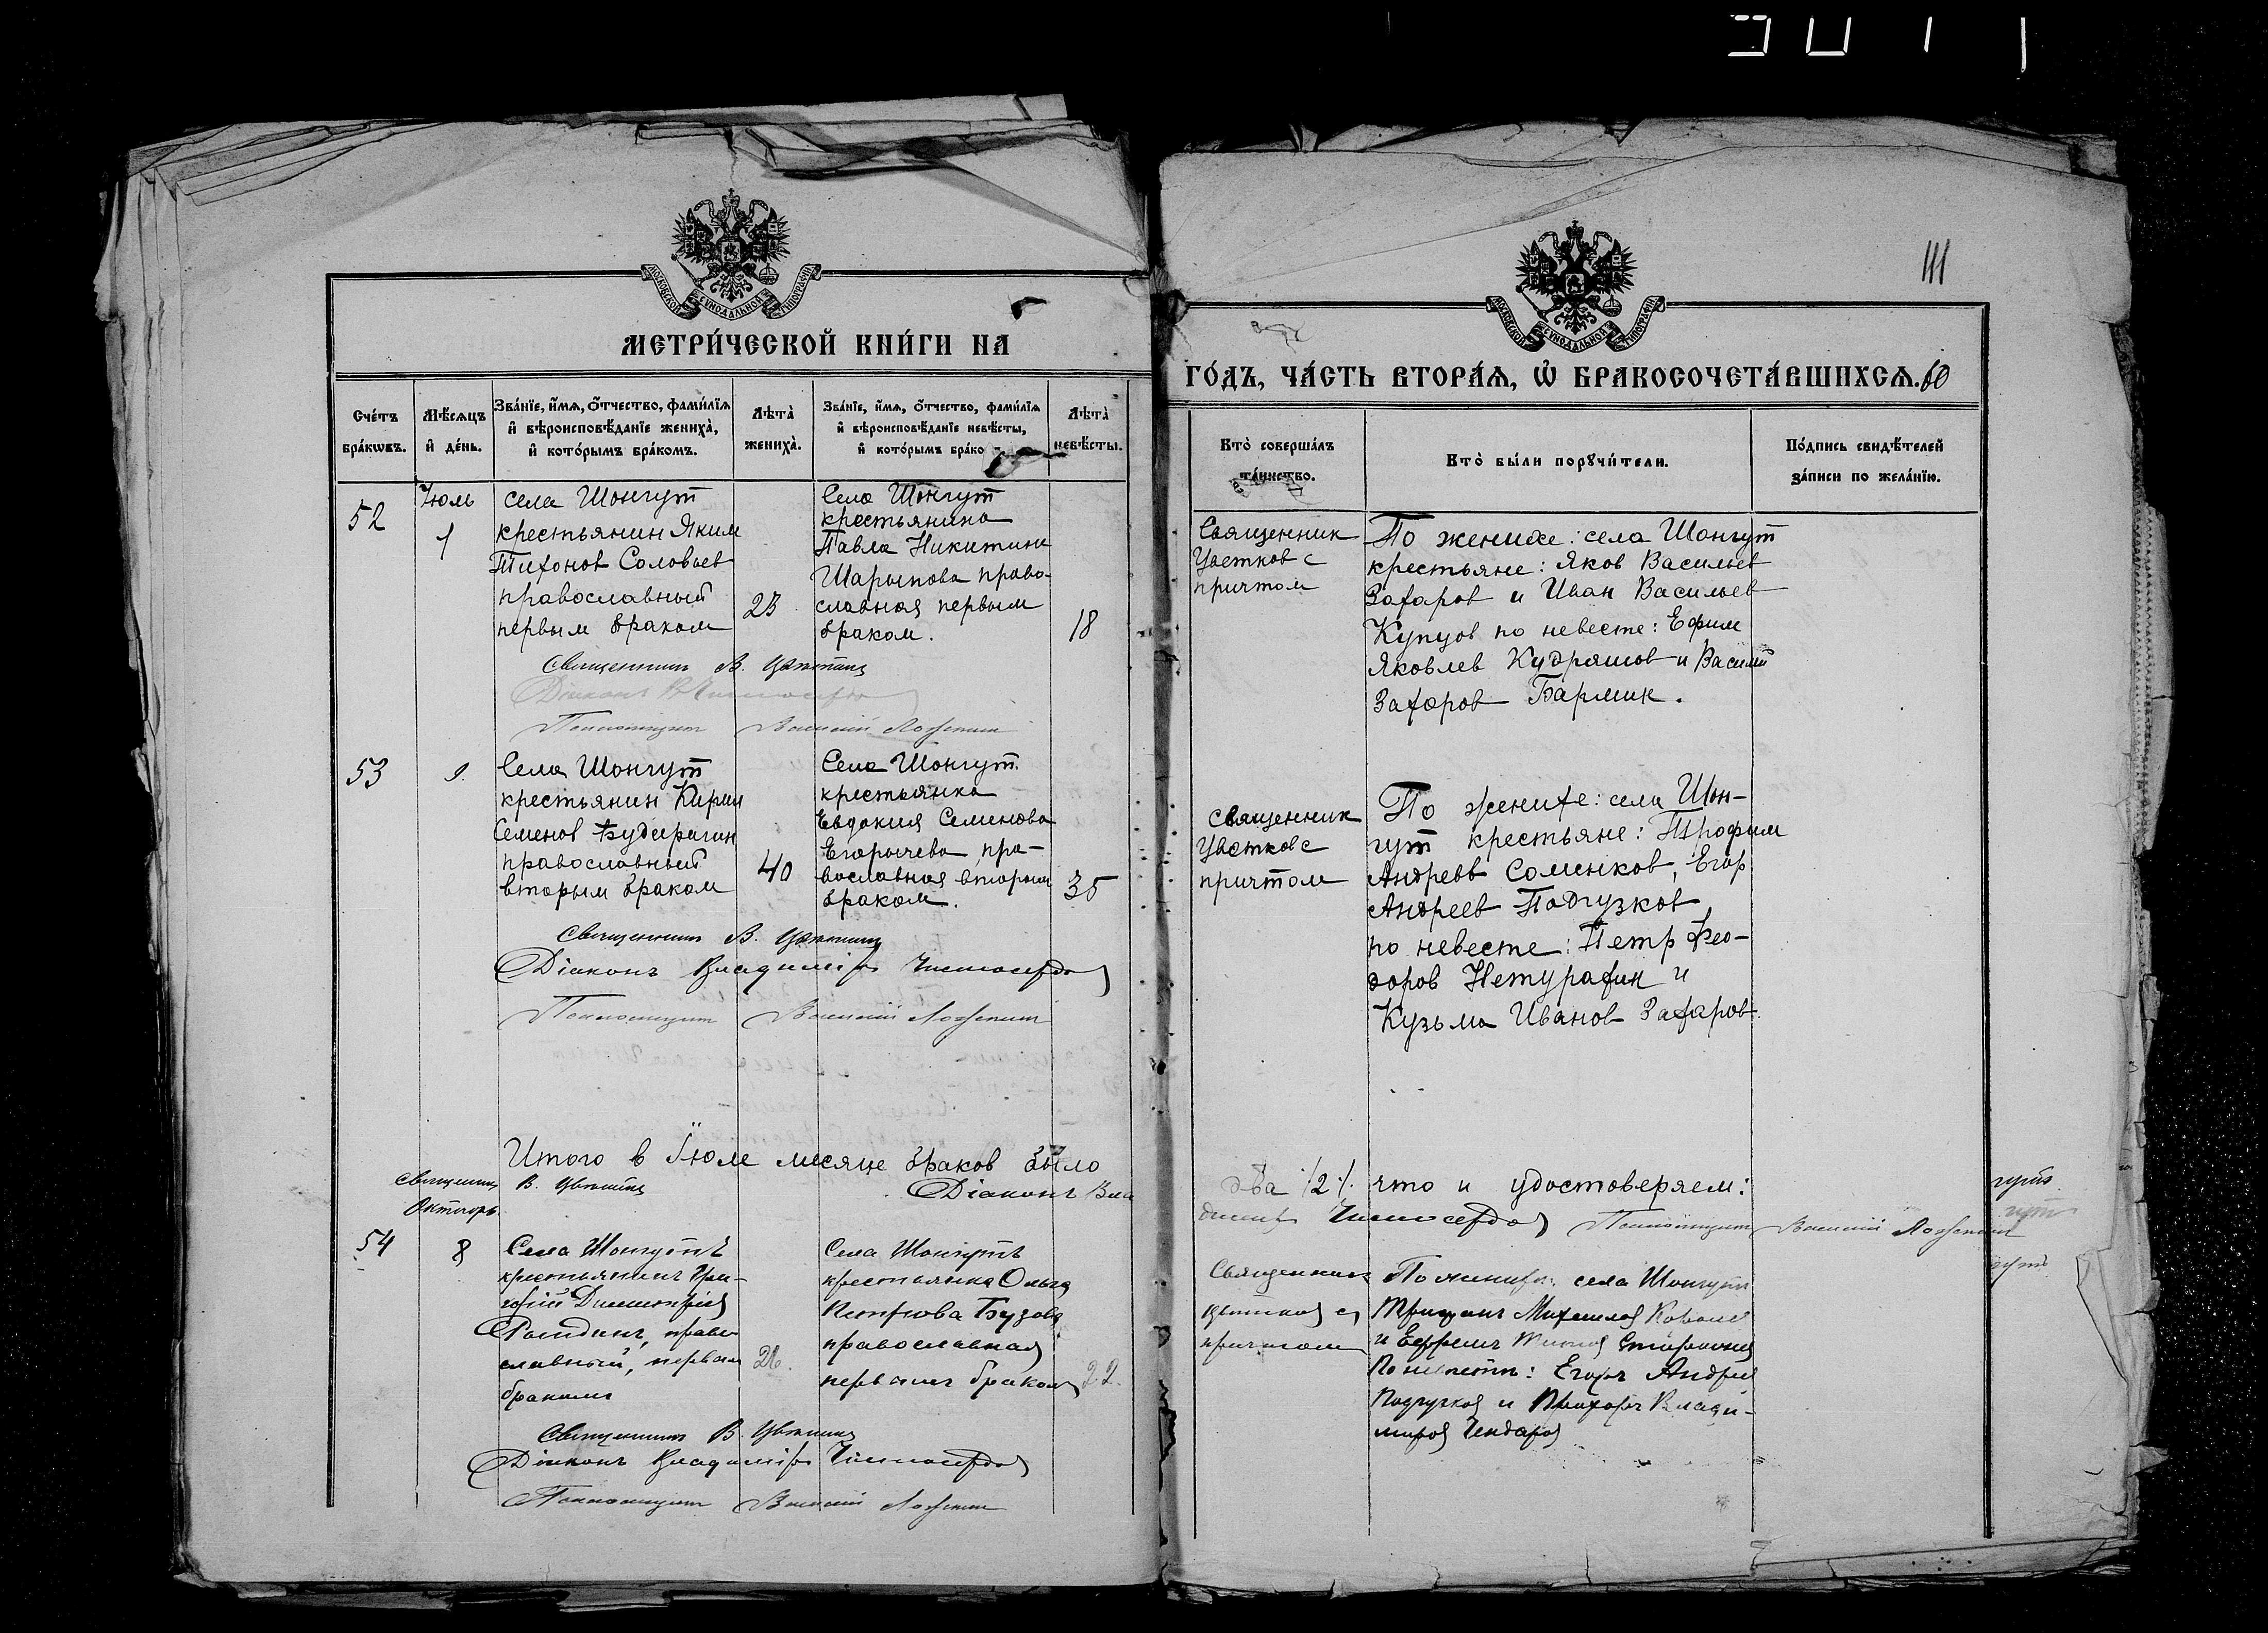 111
МЕТРИ́ЧЕСКОЙ КНИ́ГИ НА
ГО́ДЪ, ЧА́СТЬ ВТОРА́Я, Ѡ БРАКОСОЧЕТА́ВШИХСѦ.
60
Сче́тъ бра́кѡвъ.
Мѣ́сѧцъ и҆ де́нь.
Зва́нїе, и҆́мѧ, ѻ҆́тчество, фами́лїѧ
и҆ вѣроисповѣ́данїе жениха̀,
и҆ кото́рымъ бра́комъ.
Лѣта̀ жениха̀.
Зва́нїе, и҆́мѧ, ѻ҆́тчество, фами́лїѧ
и҆ вѣроисповѣ́данїе невѣ́сты,
и҆ кото́рымъ бра́ко
Лѣта̀ невѣ́сты.
Кто̀ соверша́лъ
та́инство.
Кто̀ бы́ли порꙋчи́тели.
По́дпись свидѣ́телей
за́писи по жела́нїю.
52
Июль
1
села Шонгут
крестьянин Яким
Тихонов Соловьев
православный
первым браком
23
Села Шонгут
крестьянина
Павла Никитина
Шарыпова право-
славная первым
браком.
18
Священник
Цветков с
причтом
По женихе: села Шонгут
крестьяне: Яков Васильев
Захаров и Иван Васильев
Купцов по невесте: Ефим
Яковлев Кудряшов и Василий
Захаров Бармин.
Священникъ В. Цвѣтковъ
Псаломщикъ Василий
53
Села Шонгут
крестьянин Кирил
Семенов
православный
вторым браком
40
Села Шонгут.
крестьянка
Евдокия Семенова
Егорычева пра-
вославная вторым
браком.
35
Священник
Цветков с
причтом
По женихе: села Шон-
гут крестьяне: Трофим
Андреев Соменков, Егор
Андреев Подгузков
по невесте: Петр Фео-
доров Нетурахин и
Кузьма Иванов Захаров.
Священникъ В. Цвѣтковъ
Діаконъ Владиміръ Чистосердов
Псаломщикъ Василий
Итого в Июле месяце браков было
два /2/. что и удостоверяем:
Священникъ В. Цвѣтковъ
Діаконъ Вла
диміръ Чистосердов Псаломщикъ Василий
Октябрь
54
8
Села Шонгутъ
крестьянинъ Гри-
горій Димитріев
православный, первым
бракомъ
26.
Села Шонгутъ
крестьянка Ольга
Петрова Бузова
православная
первымъ браком
22.
Священникъ
Цветков съ
причтом
По женихе: села Шонгут
Михаилов
и Ефремъ
По невесте: Егоръ Андреев
Подгузков и Прохоръ Влади-
миров
Священникъ В. Цвѣтковъ
Діаконъ Владиміръ Чистосердов
Псаломщикъ Василий